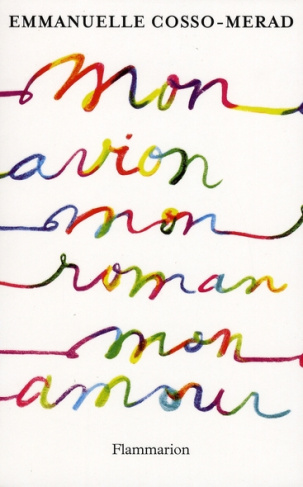 EMMANUELLE COSSO-MERAD
mon
avion
mon
roman
mon
amour
Flammarion